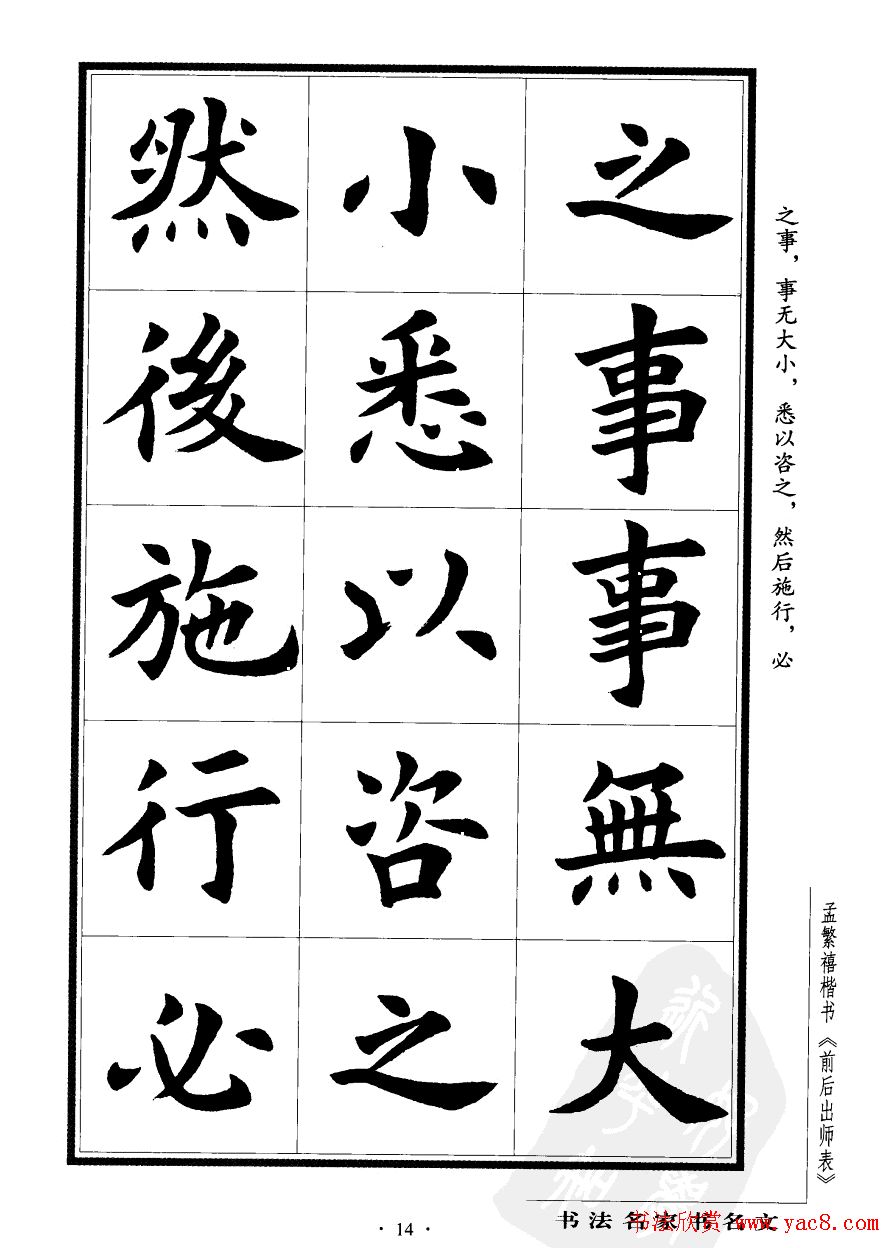 之事事無大
小悉以咨之
然後施行必
之事，事无大小，悉以咨之，然后施行，必
孟繁禧楷书《前后出师表》
书法名家书名文
书法欣赏www.yac8.com
· 14 ·